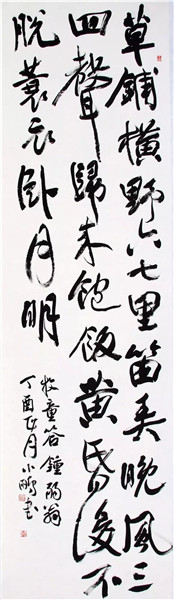 草鋪橫野六七里笛弄晚風三
四聲歸来飽飯黃昏後不
脫蓑衣卧月明
牧童答鐘弱翁
丁酉正月小鵬書